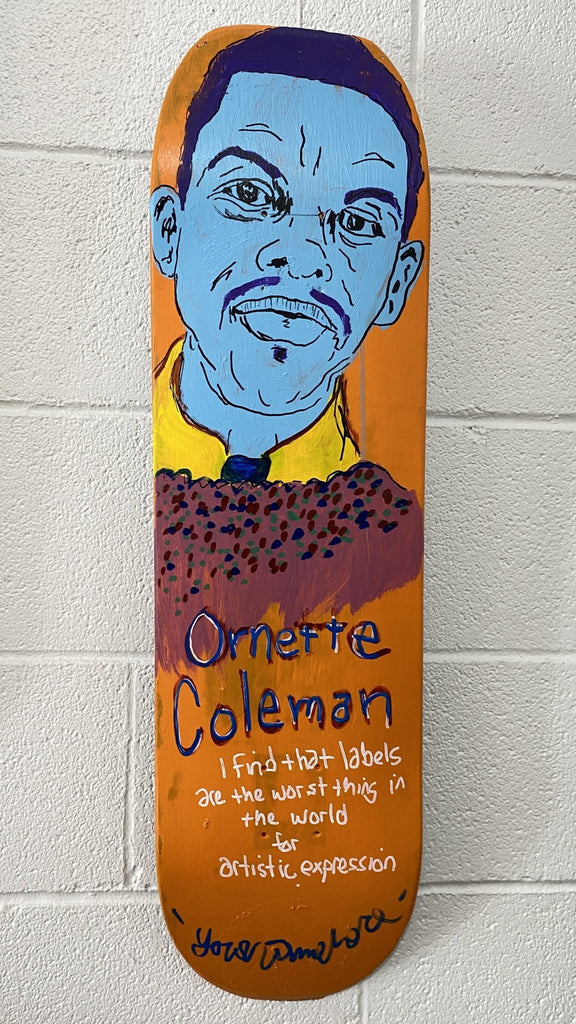 Ornette
Coleman
I find that labels
are the worst thing in
the world
for
artistic expression